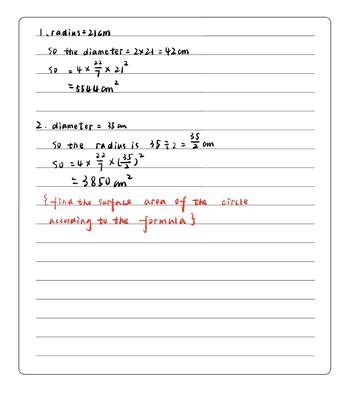 1、radius=21cm
so the diameter = 2×21 = 42cm
so = 4 × 22/7 × 21²
= 5544cm²
2. diameter = 35cm
so the radius is 35÷2 = 35/2 cm
so = 4 × 22/7 × (35/2)²
= 3850cm²
{find the surface area of the circle
according to the formula}